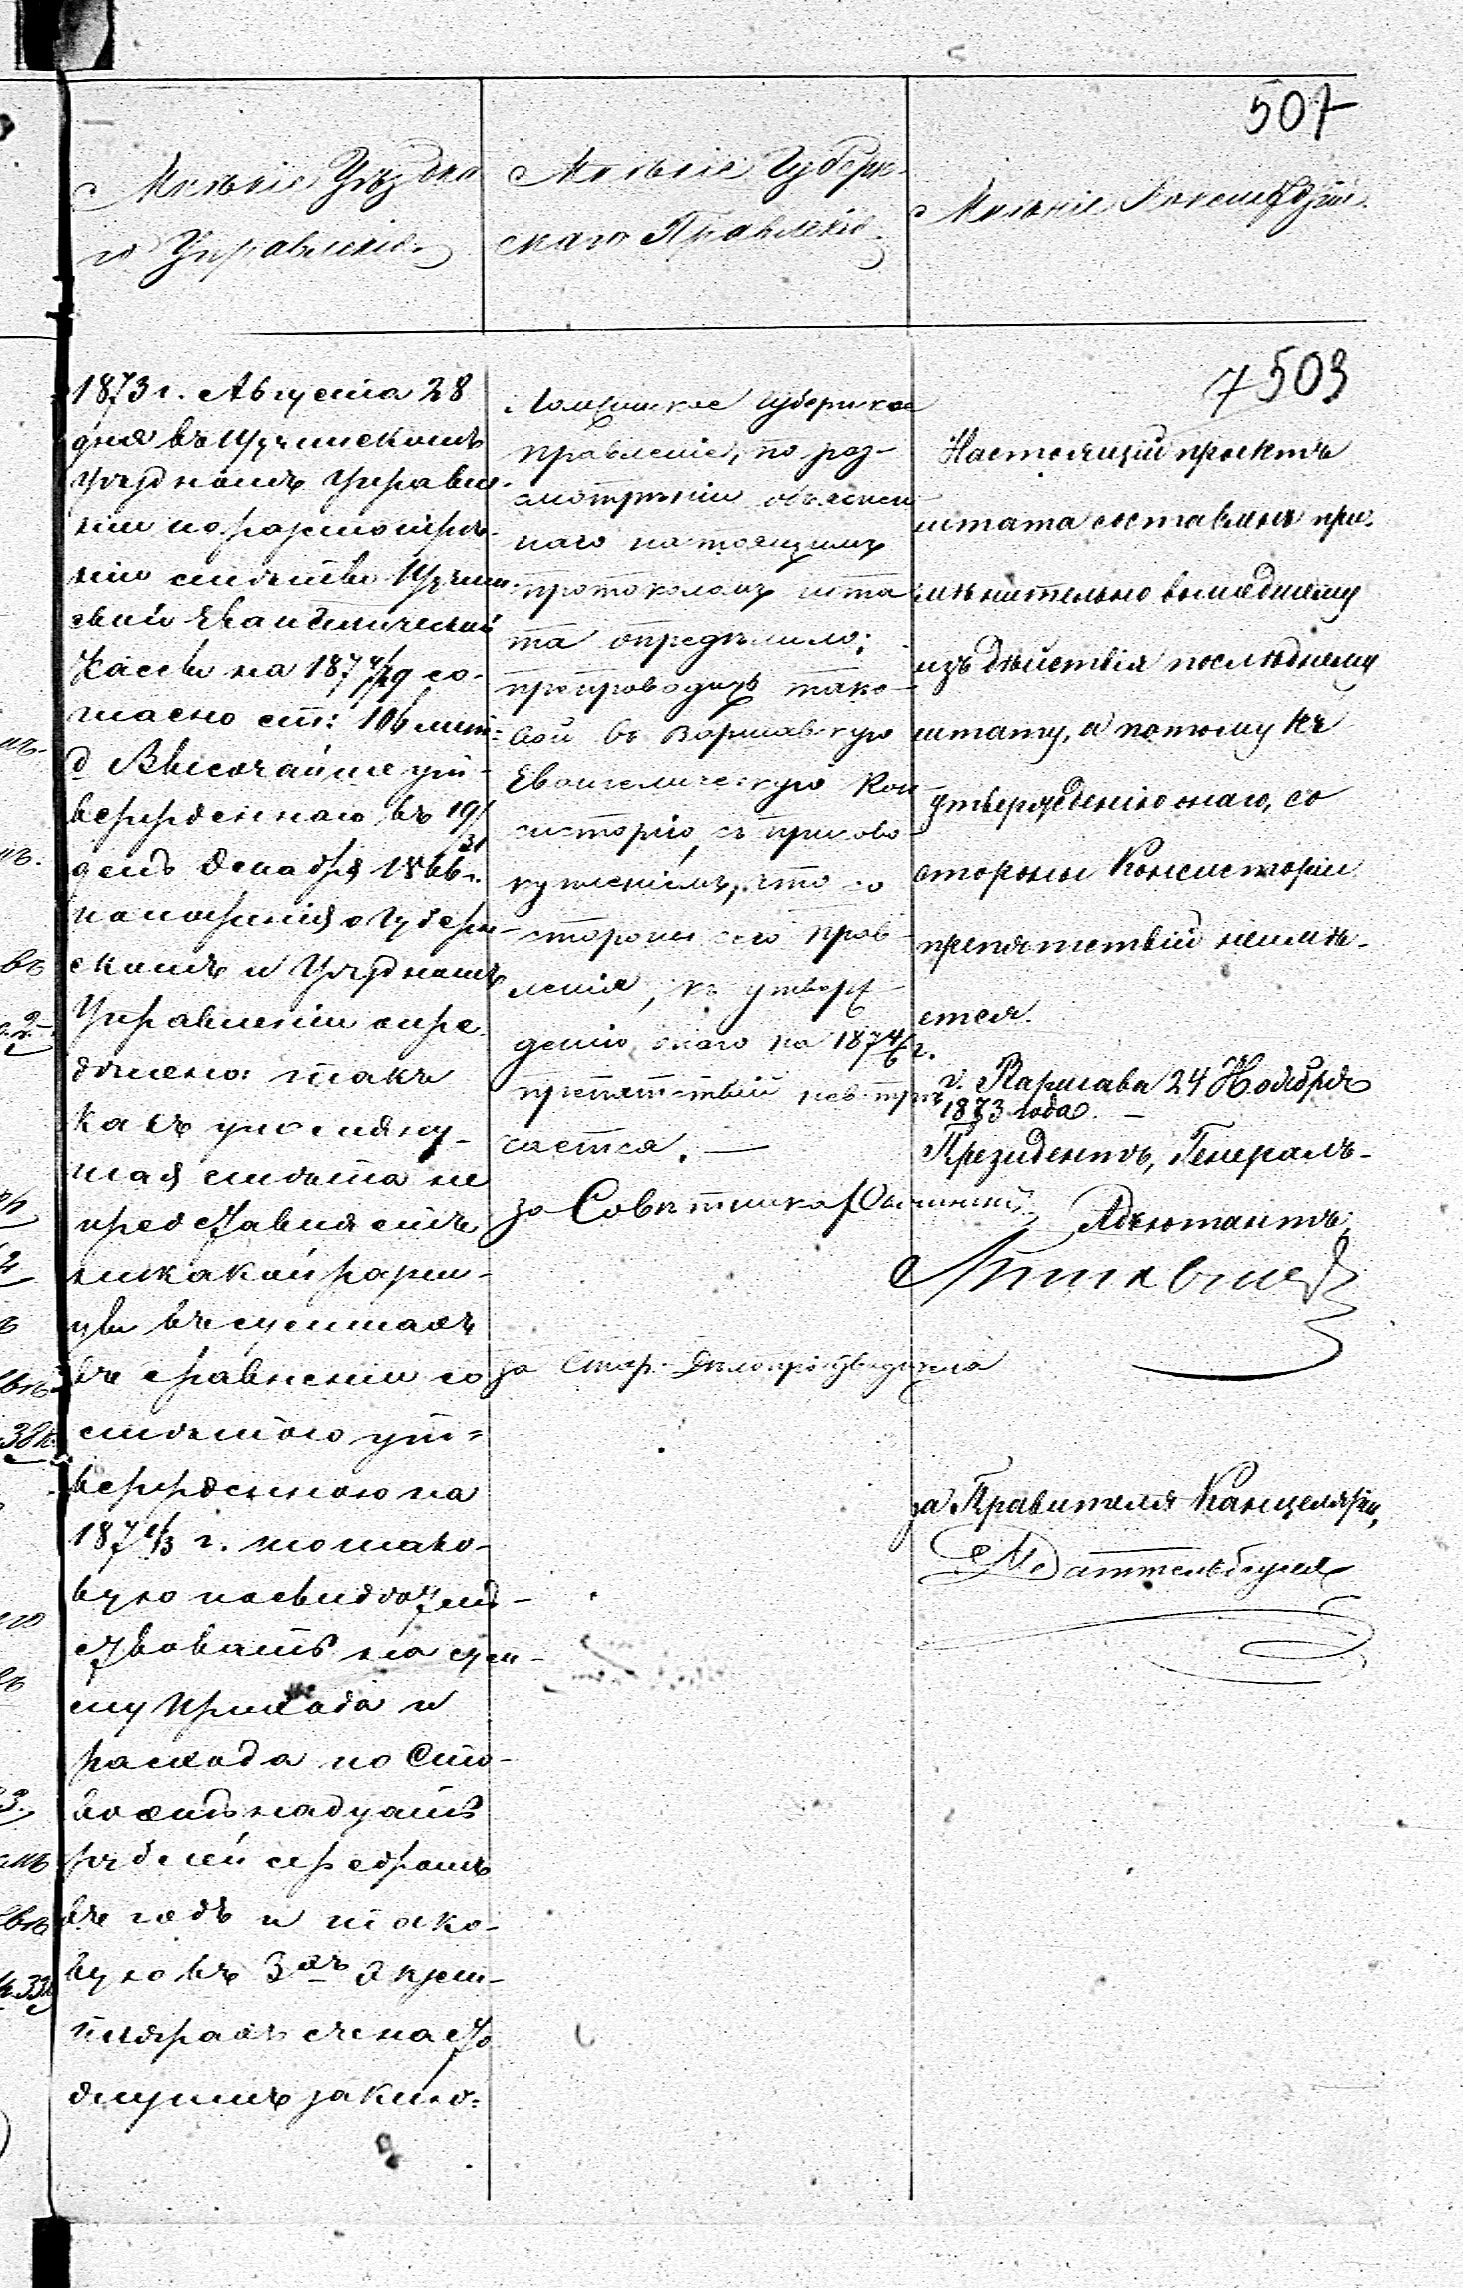 507
Мнѣніе Уѣздна
го Управленія
1873 г. Августа 28
дня въ Щучинскомъ
Уѣздномъ Управле-
ніи по разсмотрѣ-
ніи смѣты Щучин-
ской Евангелической
Кассы на 187 4/29 со-
гласно ст: 106 лит:
д Высочайше ут-
вержденнаго въ 19/31
день Декабря 1866 г.
положенія о Губерн-
скомъ и Уѣздномъ
Управленіи опре-
дѣлено: такъ
какъ упомяну-
тая смѣта не
представляетъ
никакой разни-
цы въ суммахъ
въ сравненіи со
смѣтою ут-
вержденною на
187 1/3 г. то тако-
вую посвидѣтель-
ствовать на сум-
му прихода и
расхода по Сто
рублей серебромъ
въ годъ и тако-
вую въ 3хъ экзем-
плярахъ съ насто
ящимъ заклю-
Мнѣніе Губерн-
скаго Правленія
Ломжинское губернское
правленіе, по раз-
смотрѣніи объяснен
наго настоящимъ
протоколомъ шта
та опредѣлило:
препроводить тако-
вой въ Варшавскую
Евангелическую Кон-
систорію, съ присово-
купленіемъ, что со
стороны сего прав-
ленія, къ утверж-
денію онаго на 187 4/6 г.
препятствій не встрѣ
чается. —
за Совѣтника
за Стар. Дѣлопроизводителя
Мнѣніе Консисторіи.
7 503
Настоящій проектъ
штата составленъ при-
мѣнительно вышедшему
изъ дѣйствія послѣднему
штату, а потому къ
утвержденію онаго, со
стороны Консисторіи
препятствій неимѣ-
ется.
г. Варшава 24 Ноября
1873 года. —
Президентъ, Генералъ-
Адъютантъ,
за Правителя Канцеляріи,